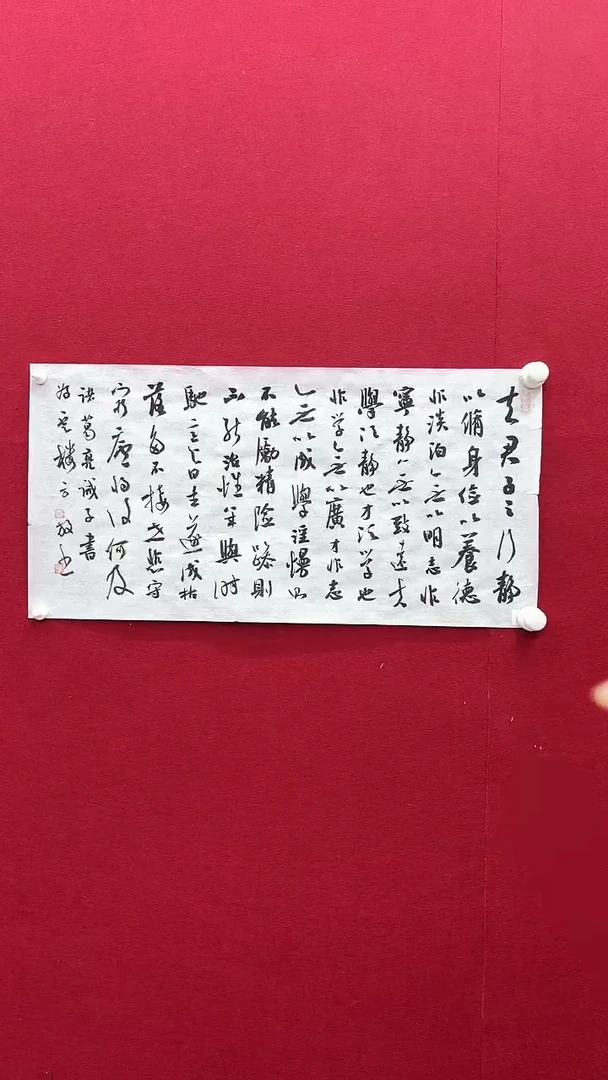 夫君子之行静
以脩身俭以養德
非淡泊無以明志非
寧静無以致遠夫
學须静也才须学也
非学無以廣才非志
無以成學淫慢則
不能勵精险躁則
不能治性年與时
馳意與日去遂成枯
落多不接世悲守
窮廬将復何及
诸葛亮诫子書